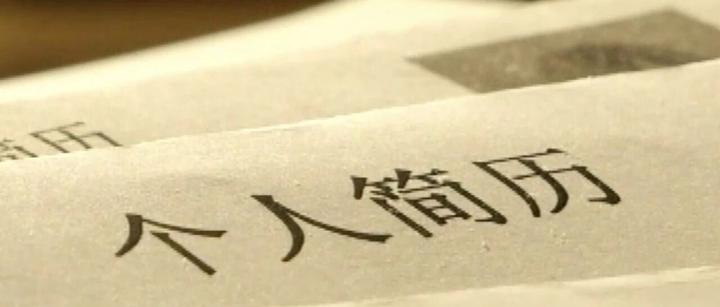 简历
个人简历